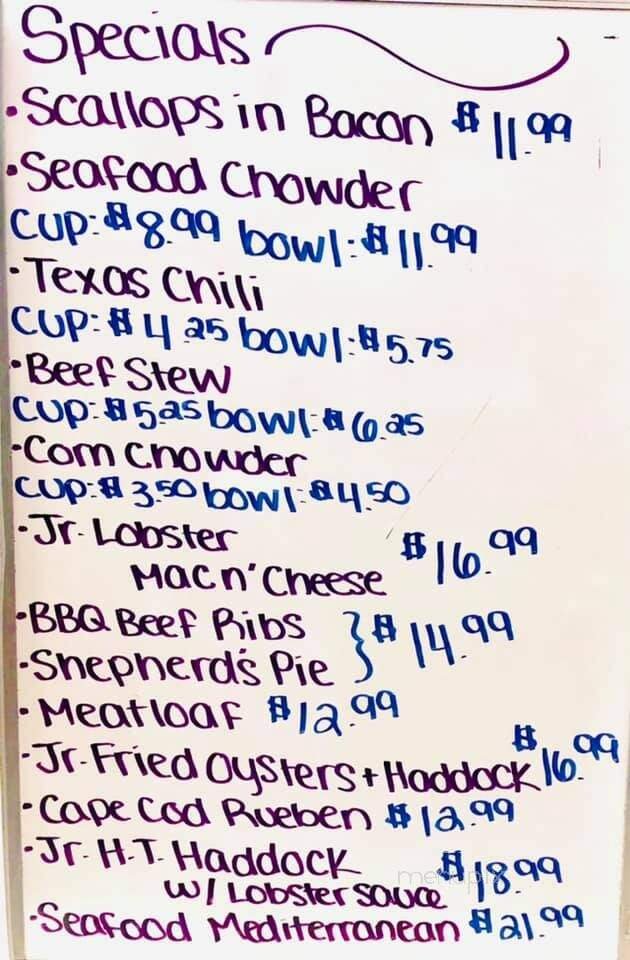 Specials
• Scallops in Bacon $11.99
• Seafood Chowder
Cup: $8.99 bowl: $11.99
• Texas Chili
Cup: $4.25 bowl: $5.75
• Beef Stew
Cup: $5.25 bowl: $6.25
• Corn Chowder
Cup: $3.50 bowl: $4.50
• Jr. Lobster
Mac n' Cheese $16.99
• BBQ Beef Ribs
• Shepherd's Pie } $14.99
• Meatloaf $12.99
• Jr. Fried Oysters + Haddock $16.99
• Cape Cod Rueben $12.99
• Jr. H.T. Haddock
w/ Lobster Sauce $18.99
• Seafood Mediterranean $21.99
menupix